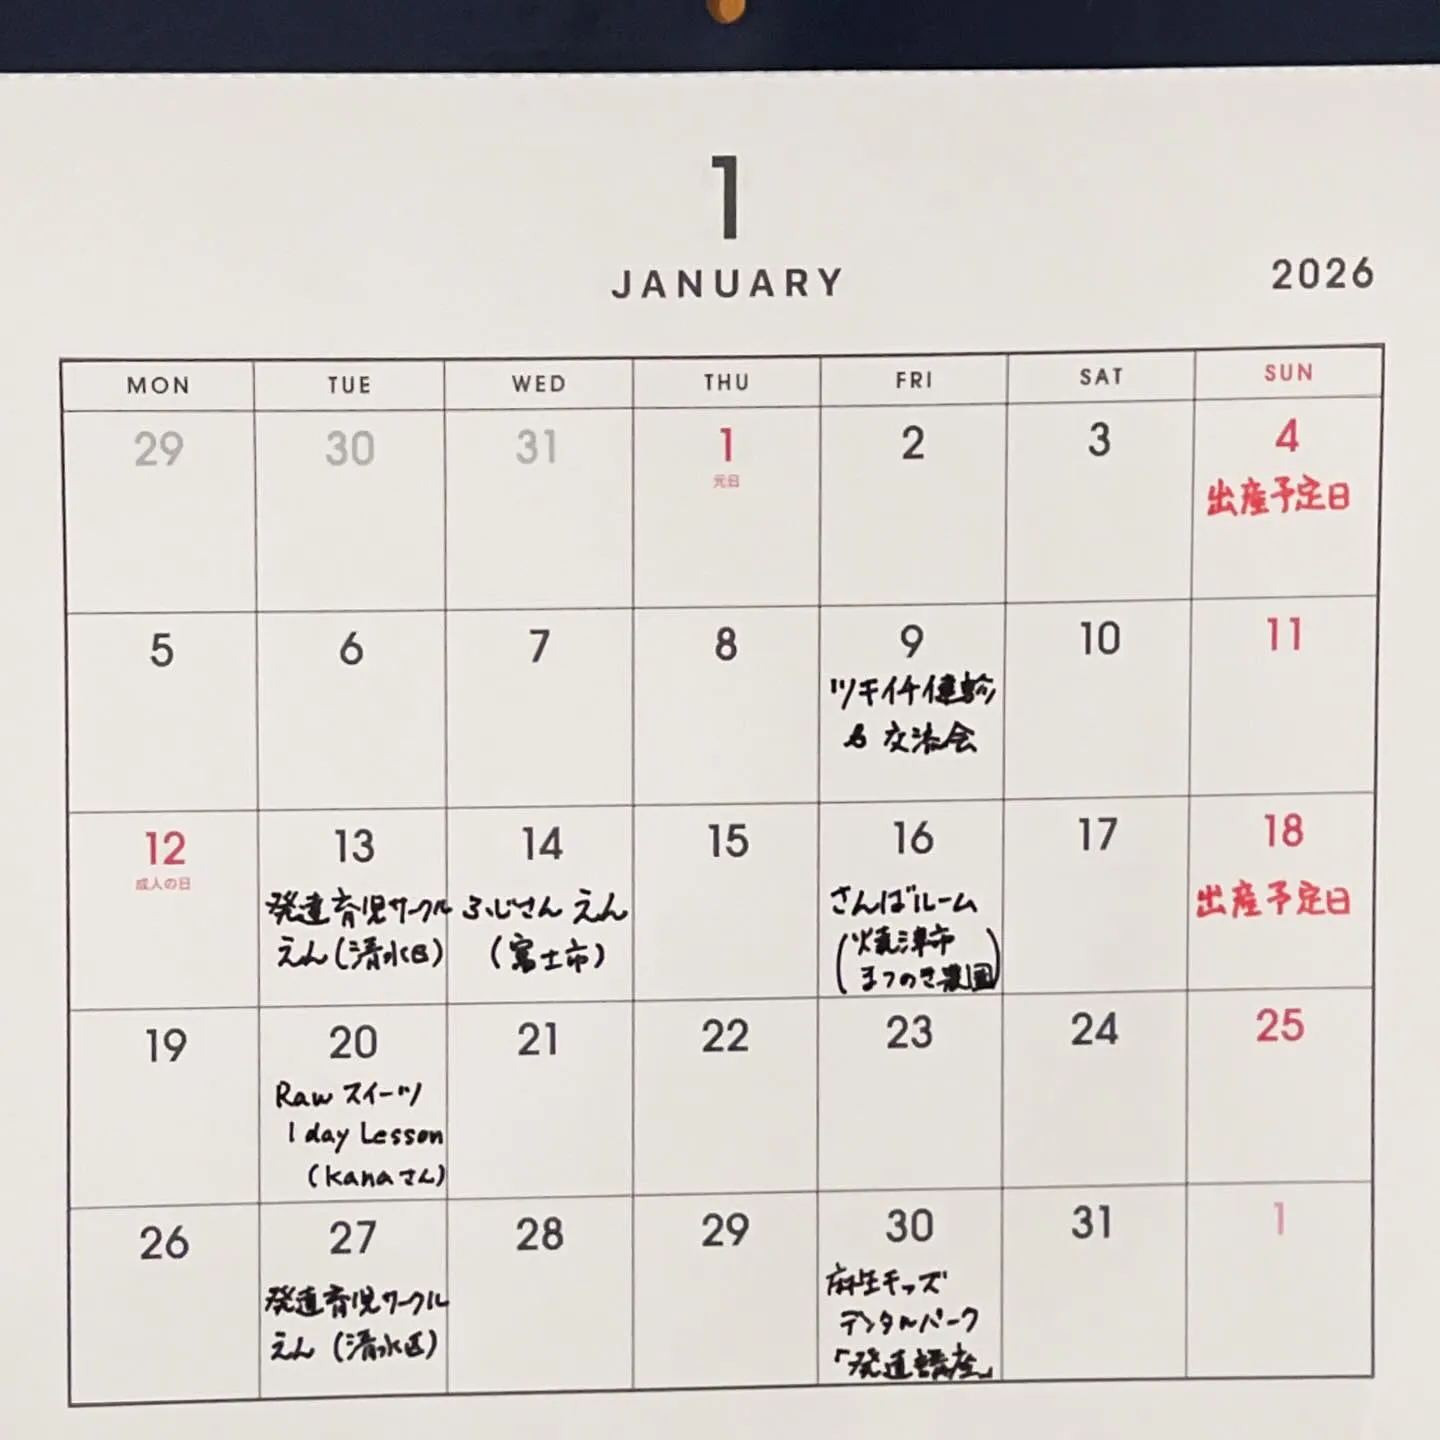 1
JANUARY
2026
MON TUE WED THU FRI SAT SUN
29 30 31 1 2 3 4
元日
出産予定日
5 6 7 8 9 10 11
ツキイチ健診
& 交流会
12 13 14 15 16 17 18
成人の日
発達育児サークル
えん(清水区)
ふじさん えん
(富士市)
さんばルーム
(焼津市
まつのき農園)
出産予定日
19 20 21 22 23 24 25
Raw スイーツ
1 day Lesson
(kanaさん)
26 27 28 29 30 31 1
発達育児サークル
えん (清水区)
麻生キッズ
デンタルパーク
「発達講座」